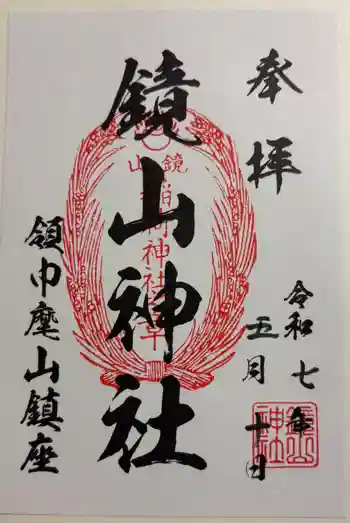 奉拝
令和七年
五月十日
鏡山神社
領巾麾山鎮座
鏡山
稲荷神社